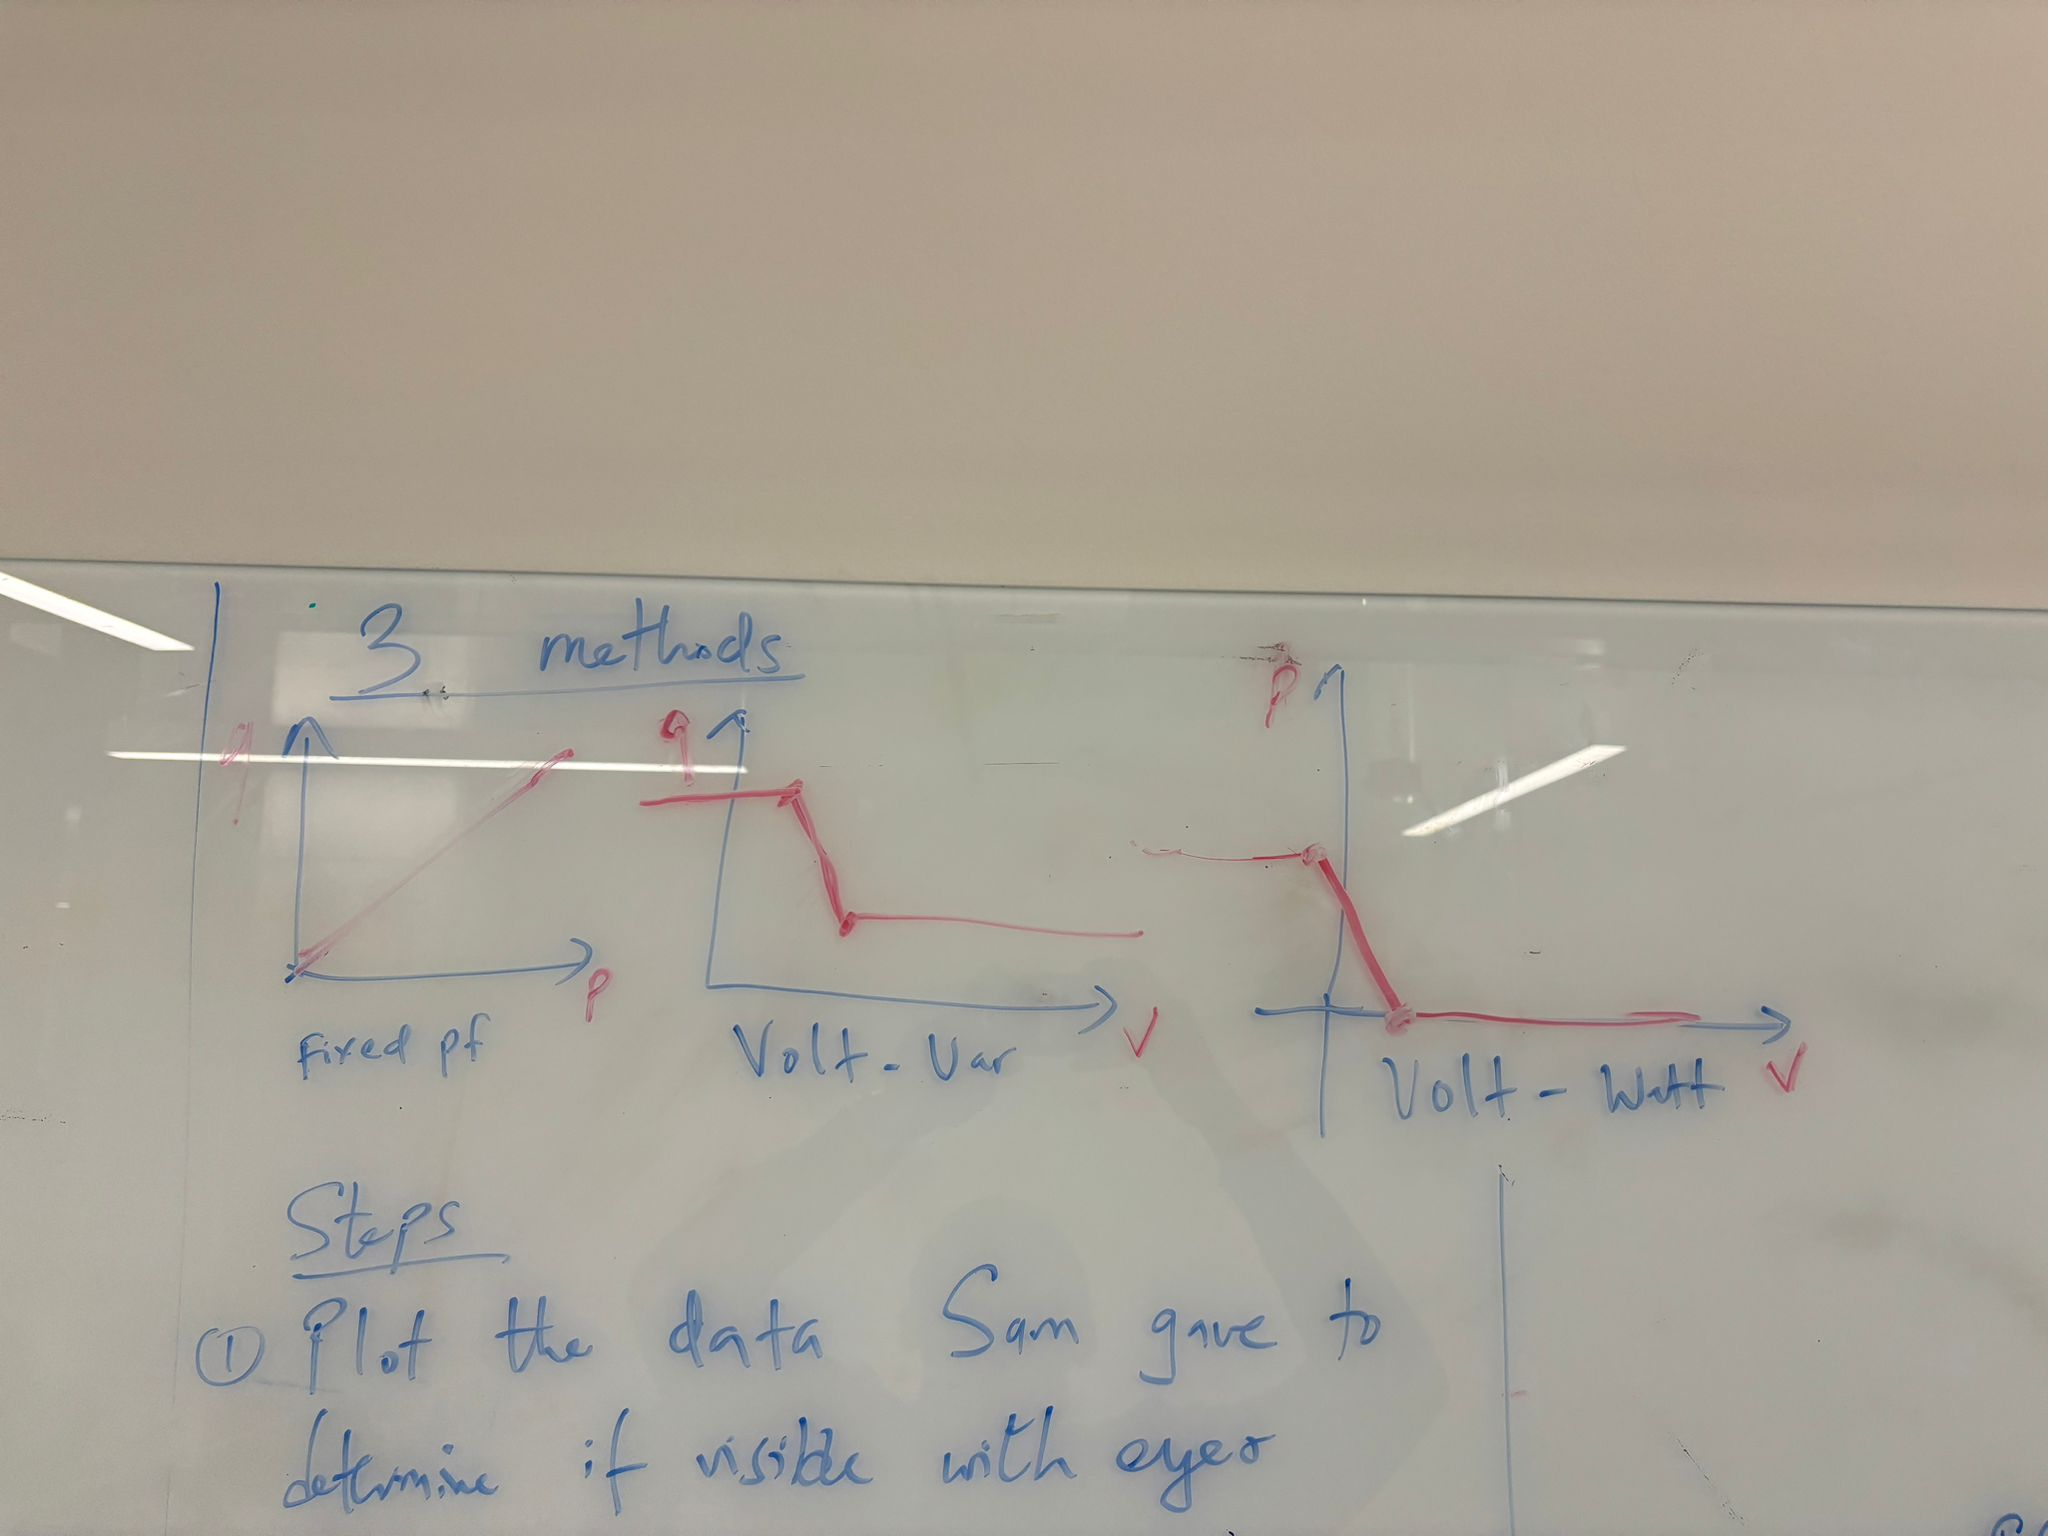 3 methods
q
P
Fixed pf
q
V
Volt - Var
P
V
Volt - Watt
Steps
① Plot the data Sam gave to
determine if visible with eyes